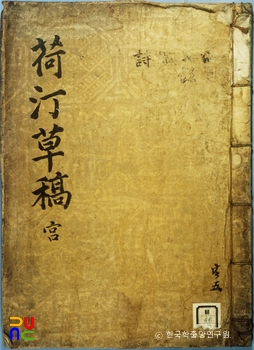 荷汀草稿
宮
詩
共五
© 한국학중앙연구원